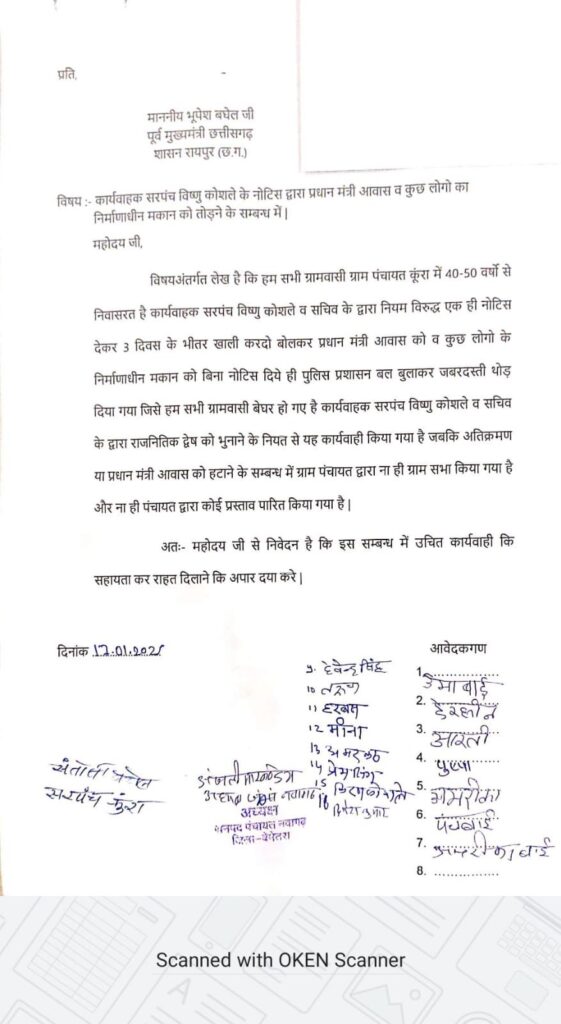 प्रति,
माननीय भूपेश बघेल जी
पूर्व मुख्यमंत्री छत्तीसगढ़
शासन रायपुर (छ.ग.)
विषय :- कार्यवाहक सरपंच विष्णु कोशले के नोटिस द्वारा प्रधान मंत्री आवास व कुछ लोगो का
निर्माणाधीन मकान को तोड़ने के सम्बन्ध में|
महोदय जी,
विषयअंतर्गत लेख है कि हम सभी ग्रामवासी ग्राम पंचायत कूंरा में 40-50 वर्षो से
निवासरत है कार्यवाहक सरपंच विष्णु कोशले व सचिव के द्वारा नियम विरुद्ध एक ही नोटिस
देकर 3 दिवस के भीतर खाली करदो बोलकर प्रधान मंत्री आवास को व कुछ लोगो के
निर्माणाधीन मकान को बिना नोटिस दिये ही पुलिस प्रशासन बल बुलाकर जबरदस्ती थोड़
दिया गया जिसे हम सभी ग्रामवासी बेघर हो गए है कार्यवाहक सरपंच विष्णु कोशले व सचिव
के द्वारा राजनितिक द्वेष को भुनाने के नियत से यह कार्यवाही किया गया है जबकि अतिक्रमण
या प्रधान मंत्री आवास को हटाने के सम्बन्ध में ग्राम पंचायत द्वारा ना ही ग्राम सभा किया गया है
और ना ही पंचायत द्वारा कोई प्रस्ताव पारित किया गया है|
अतः- महोदय जी से निवेदन है कि इस सम्बन्ध में उचित कार्यवाही कि
सहायता कर राहत दिलाने कि अपार दया करे|
दिनांक 17.01.202
आवेदकगण
1. उमा बाई
2.
3. आरती
4. पुष्पा
5.
6. पंचबाई
7. बाई
8.
9. देवेन्द्र सिंह
10 तरुण
11
12 मीना
13
14 प्रेमसिंग
15
16
सरपंच कुंरा
अध्यक्ष
जनपद पंचायत नवागढ़
जिला-बेमेतरा
Scanned with OKEN Scanner